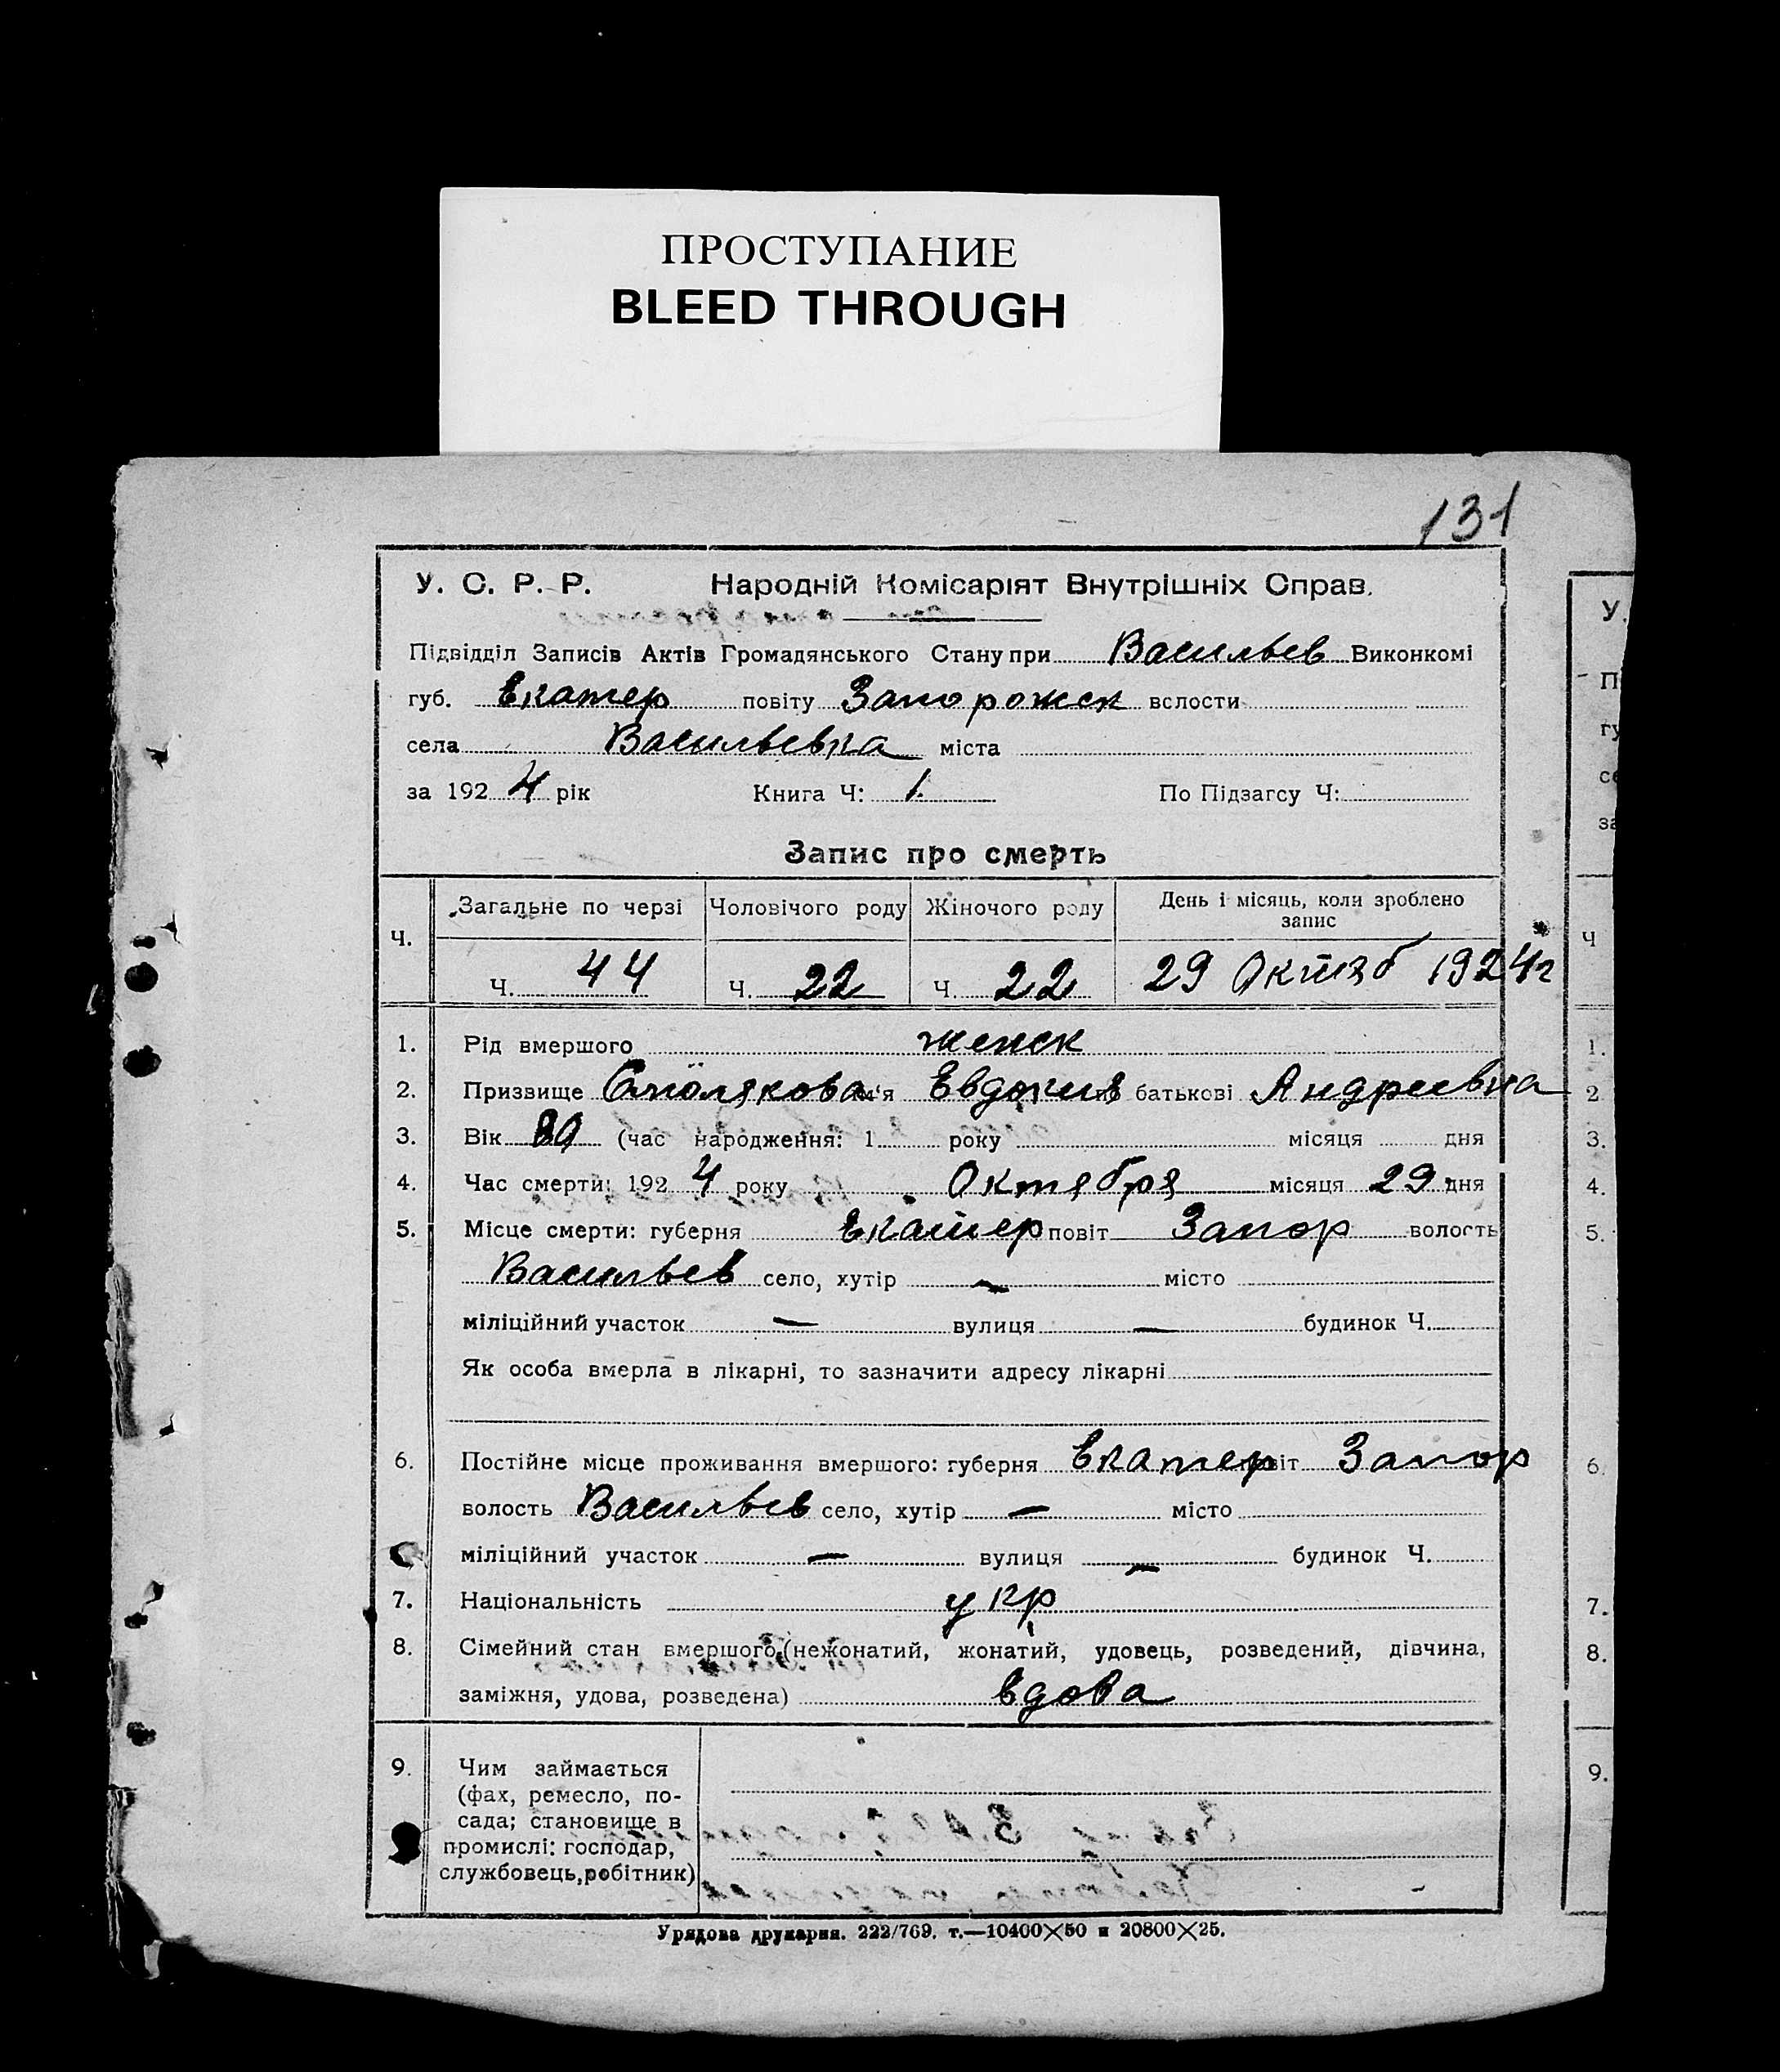 ПРОСТУПАНИЕ
BLEED THROUGH
131
У. С. Р. Р. Народній Комісаріят Внутрішніх Справ.
Підвідділ Записів Актів Громадянського Стану при Васильев Виконкомі
губ. Екатер повіту Запорожск волости
села Васильевка міста
за 1924 рік Книга Ч: 1. По Підзагсу Ч:
Запис про смерть
Ч. Загальне по черзі Чоловічого роду Жіночого роду День і місяць, коли зроблено запис
Ч. 44 Ч. 22 Ч. 22 29 Октяб 1924г
1. Рід вмершого женск
2. Призвище ім'я Евдокия по батькові Андреевна
3. Вік (час народження: 1 року місяця дня
4. Час смерти: 1924 року Октября місяця 29 дня
5. Місце смерти: губерня Екатер повіт Запор волость
Васильев село, хутір — місто
міліційний участок — вулиця — будинок Ч.
Як особа вмерла в лікарні, то зазначити адресу лікарні
6. Постійне місце проживання вмершого: губерня Екатер повіт Запор
волость Васильев село, хутір — місто
міліційний участок — вулиця — будинок Ч.
7. Національність укр
8. Сімейний стан вмершого (нежонатий, жонатий, удовець, розведений, дівчина,
заміжня, удова, розведена) вдова
9. Чим займається
(фах, ремесло, по-
сада; становище в
промислі: господар,
службовець, робітник)
Урядова друкарня. 222/769. т.—10400×50 и 20800×25.
У.
П
гу
се
за
Ч
1.
2
3.
4.
5.
6.
7.
8.
9.